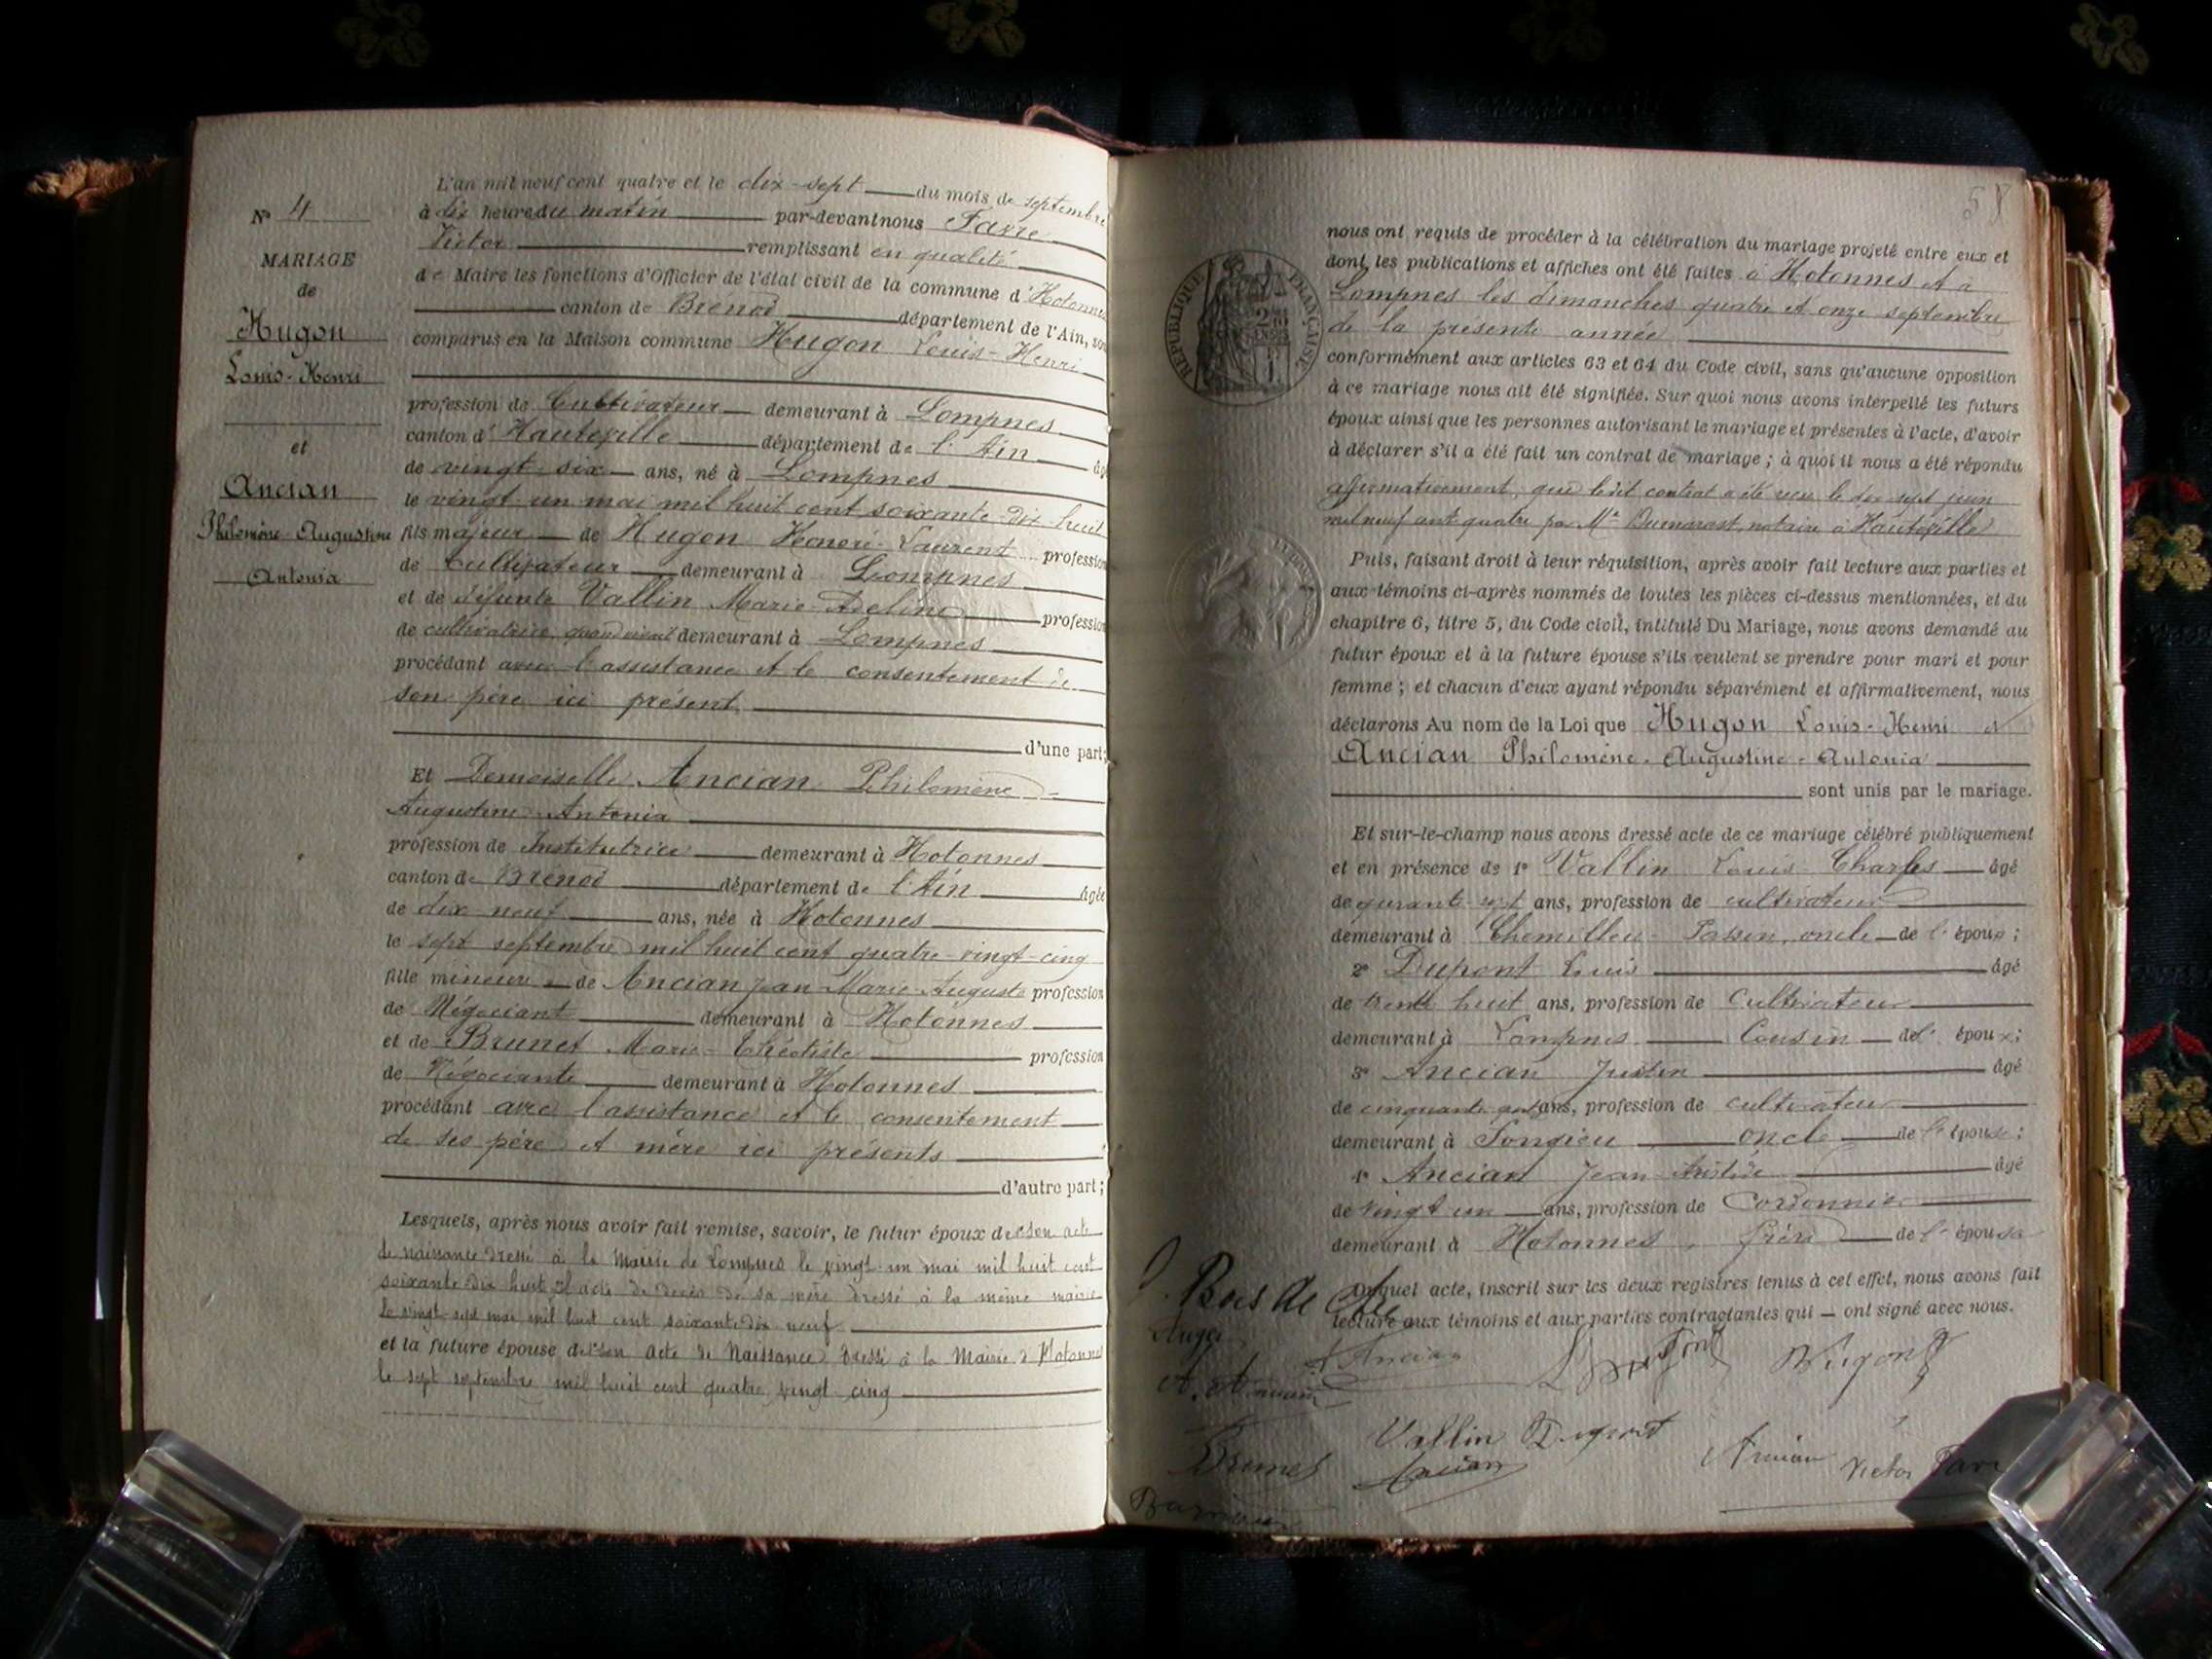 N° 4
MARIAGE
de
Hugon
Louis-Henri
et
Ancian
Philomène-Augustine
Antonia
L'an mil neuf cent quatre et le dix-sept du mois de septembre
à dix heure du matin par-devant nous Favre
Victor remplissant en qualité
de Maire les fonctions d'Officier de l'état civil de la commune d'Hotonnes
canton de Brenod département de l'Ain, son
comparus en la Maison commune Hugon Louis-Henri
profession de Cultivateur demeurant à Lompnes
canton d'Hauteville département de l'Ain âgé
de vingt-six ans, né à Lompnes
le vingt-un mai mil huit cent soixante-dix-huit
fils majeur de Hugon Honoré-Laurent profession
de Cultivateur demeurant à Lompnes
et de défunte Vallin Marie-Adeline profession
de cultivatrice, quand vivait demeurant à Lompnes
procédant avec l'assistance et le consentement de
son père ici présent
d'une part;
Et Demoiselle Ancian Philomène
Augustine-Antonia
profession de Institutrice demeurant à Hotonnes
canton de Brenod département de l'Ain âgée
de dix-neuf ans, née à Hotonnes
le sept septembre mil huit cent quatre-vingt-cinq
fille mineure de Ancian Jean-Marie-Auguste profession
de Négociant demeurant à Hotonnes
et de Brunet Marie-Théotiste profession
de Négociante demeurant à Hotonnes
procédant avec l'assistance et le consentement
de ses père et mère ici présents
d'autre part;
Lesquels, après nous avoir fait remise, savoir, le futur époux de son acte
de naissance dressé à la Mairie de Lompnes le vingt-un mai mil huit cent
soixante-dix huit de acte de décès de sa mère dressé à la même mairie
le vingt-sept mai mil huit cent soixante dix neuf
et la future épouse de son acte de Naissance dressé à la Mairie d'Hotonnes
le sept septembre mil huit cent quatre vingt cinq
58
RÉPUBLIQUE FRANÇAISE
nous ont requis de procéder à la célébration du mariage projeté entre eux et
dont les publications et affiches ont été faites à Hotonnes et à
Lompnes les dimanches quatre et onze septembre
de la présente année
conformément aux articles 63 et 64 du Code civil, sans qu'aucune opposition
à ce mariage nous ait été signifiée. Sur quoi nous avons interpellé les futurs
époux ainsi que les personnes autorisant le mariage et présentes à l'acte, d'avoir
à déclarer s'il a été fait un contrat de mariage; à quoi il nous a été répondu
affirmativement, que ledit contrat a été reçu le dix sept juin
mil neuf cent quatre par Me Dumarest, notaire à Hauteville
Puis, faisant droit à leur réquisition, après avoir fait lecture aux parties et
aux témoins ci-après nommés de toutes les pièces ci-dessus mentionnées, et du
chapitre 6, titre 5, du Code civil, intitulé Du Mariage, nous avons demandé au
futur époux et à la future épouse s'ils veulent se prendre pour mari et pour
femme; et chacun d'eux ayant répondu séparément et affirmativement, nous
déclarons Au nom de la Loi que Hugon Louis-Henri et
Ancian Philomène-Augustine-Antonia
sont unis par le mariage.
Et sur-le-champ nous avons dressé acte de ce mariage célébré publiquement
et en présence de 1° Vallin Louis Charles âgé
de quarante sept ans, profession de cultivateur
demeurant à Chemillieu-Passin, oncle de l'époux;
2° Dupont Louis âgé
de trente huit ans, profession de Cultivateur
demeurant à Lompnes Cousin de l'époux;
3° Ancian Justin âgé
de cinquante ans, profession de cultivateur
demeurant à Songieu oncle de l'épouse;
4° Ancian Jean-Aristide âgé
de vingt un ans, profession de Cordonnier
demeurant à Hotonnes, frère de l'épouse
Duquel acte, inscrit sur les deux registres tenus à cet effet, nous avons fait
lecture aux témoins et aux parties contractantes qui ont signé avec nous.
Ancian Dupont Hugon
A. Ancian
Vallin Dupont
Brunet Ancian Ancian Victor Favre